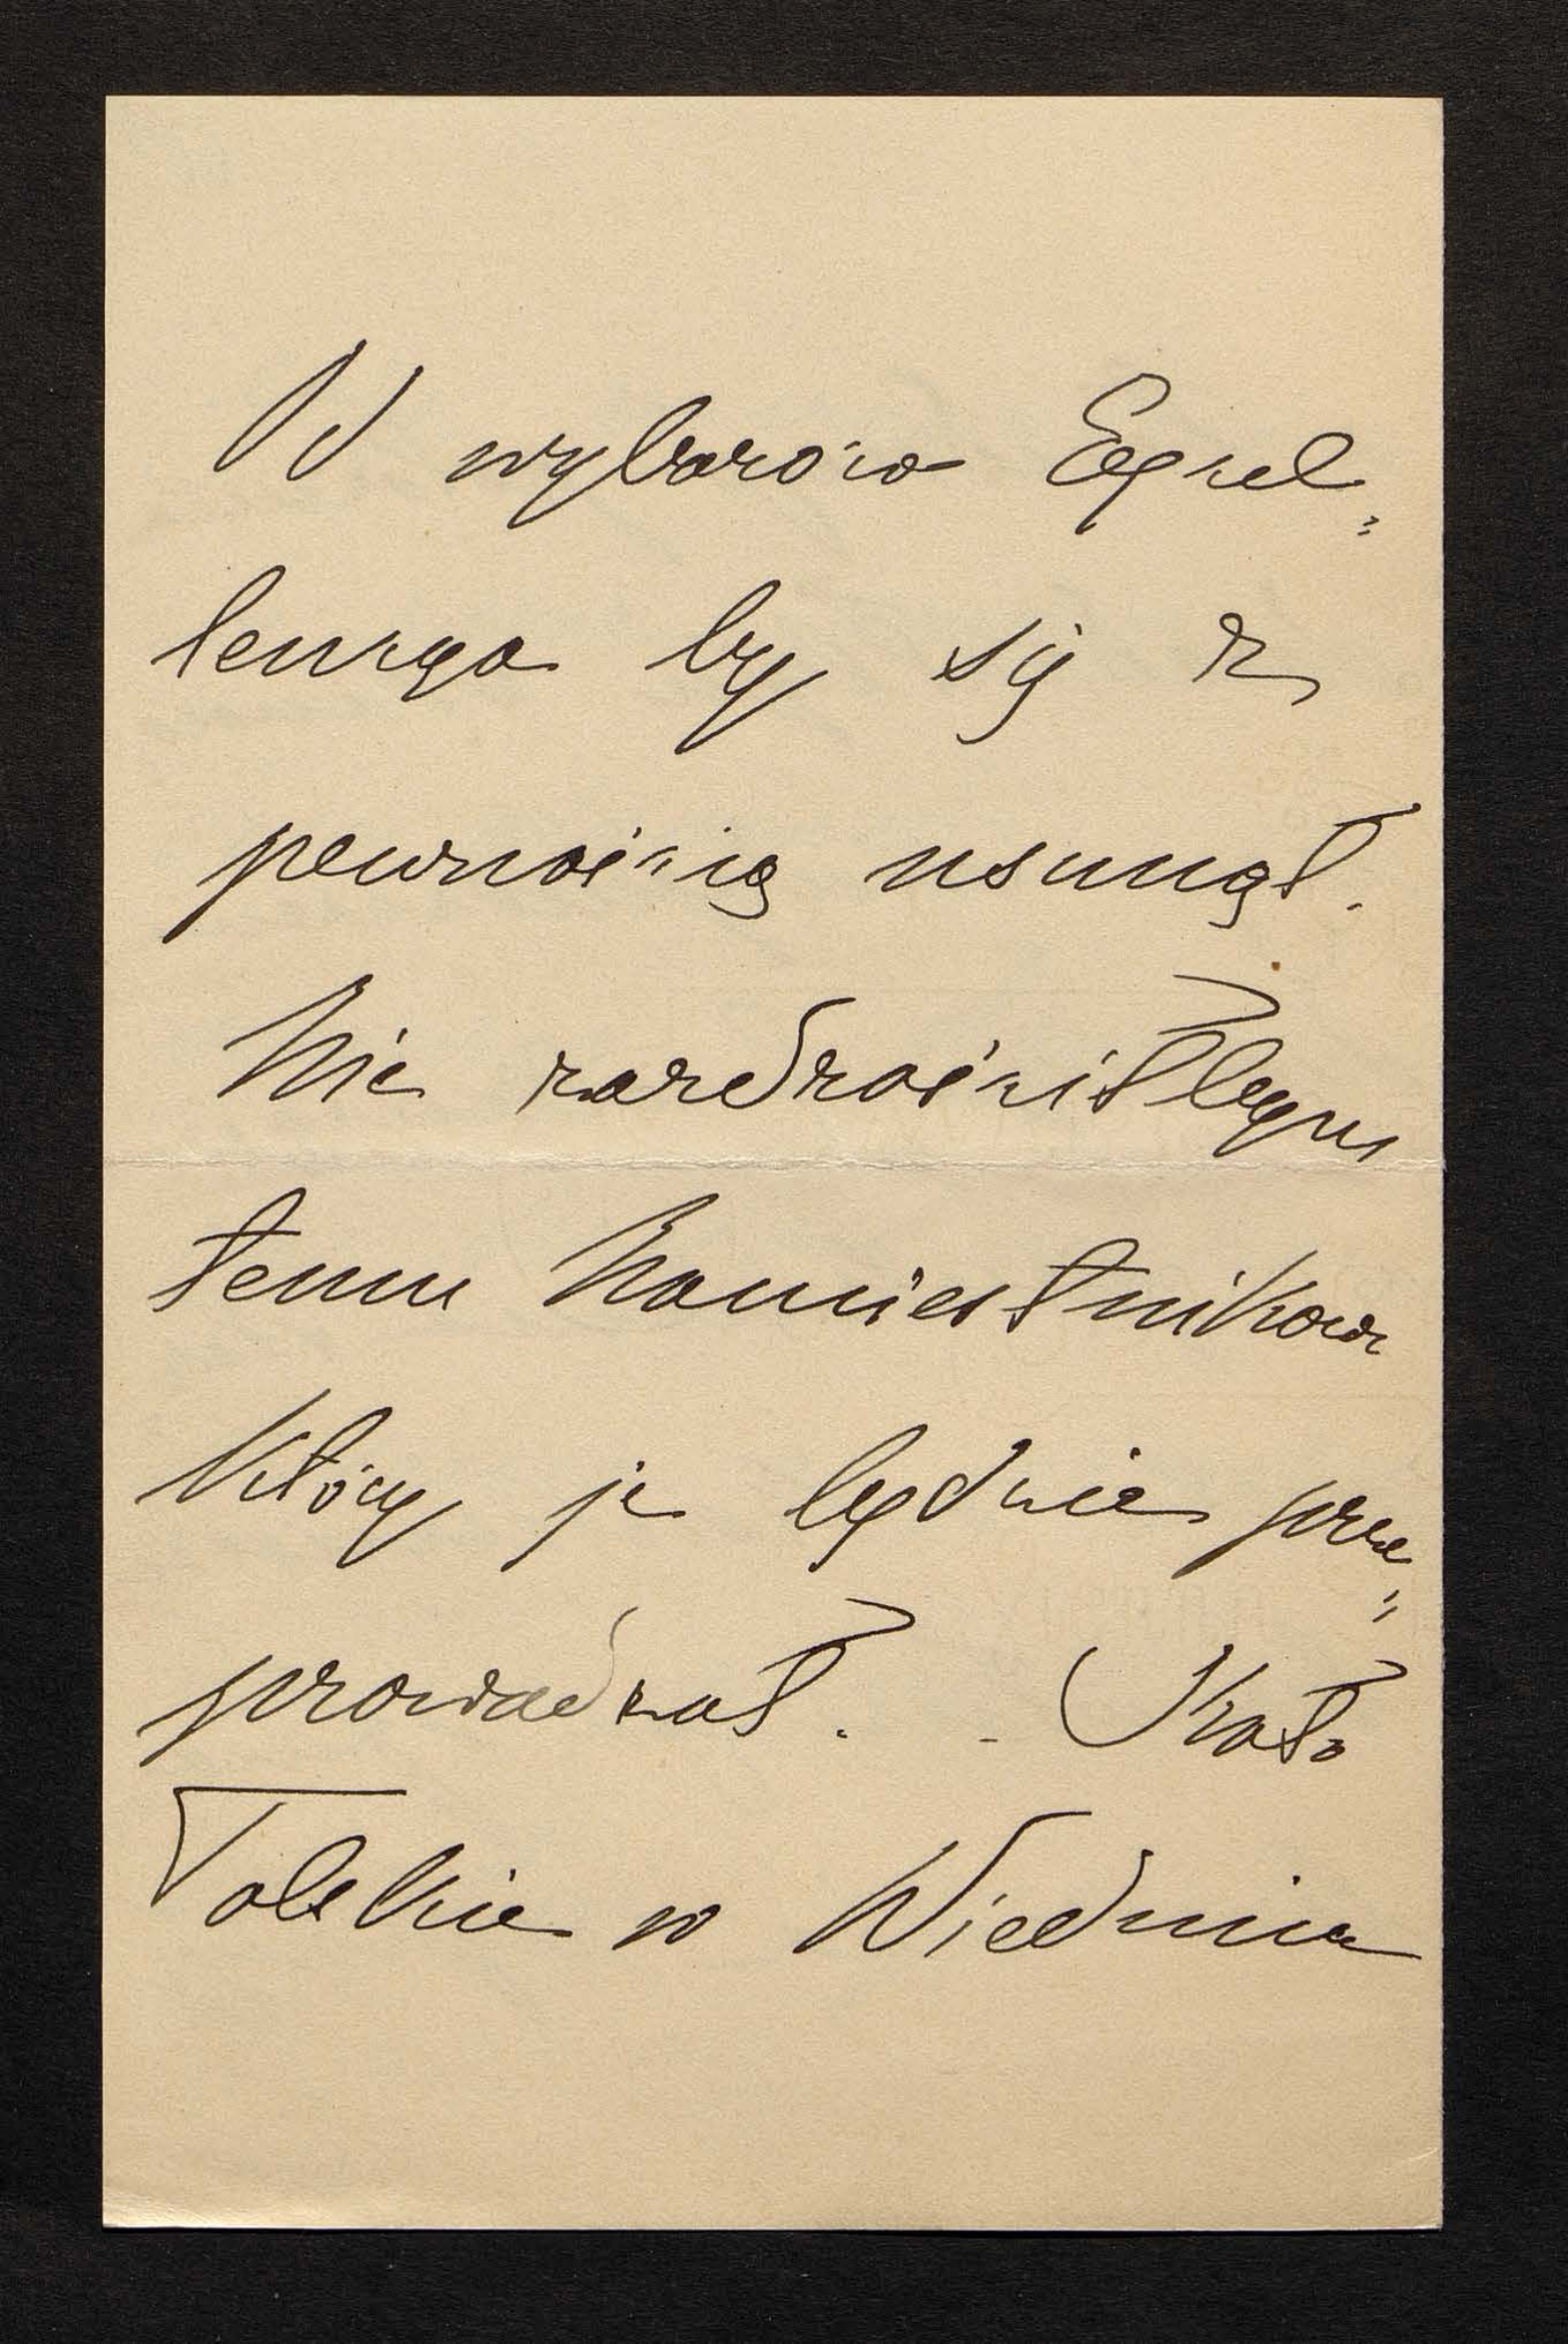 Od wyborów Excel=
lencya by się z
pewnością usunął.
Nie zazdrościłbym
temu Namiestnikowi
który je będzie prze=
prowadzał. - Koło
Polskie w Wiedniu